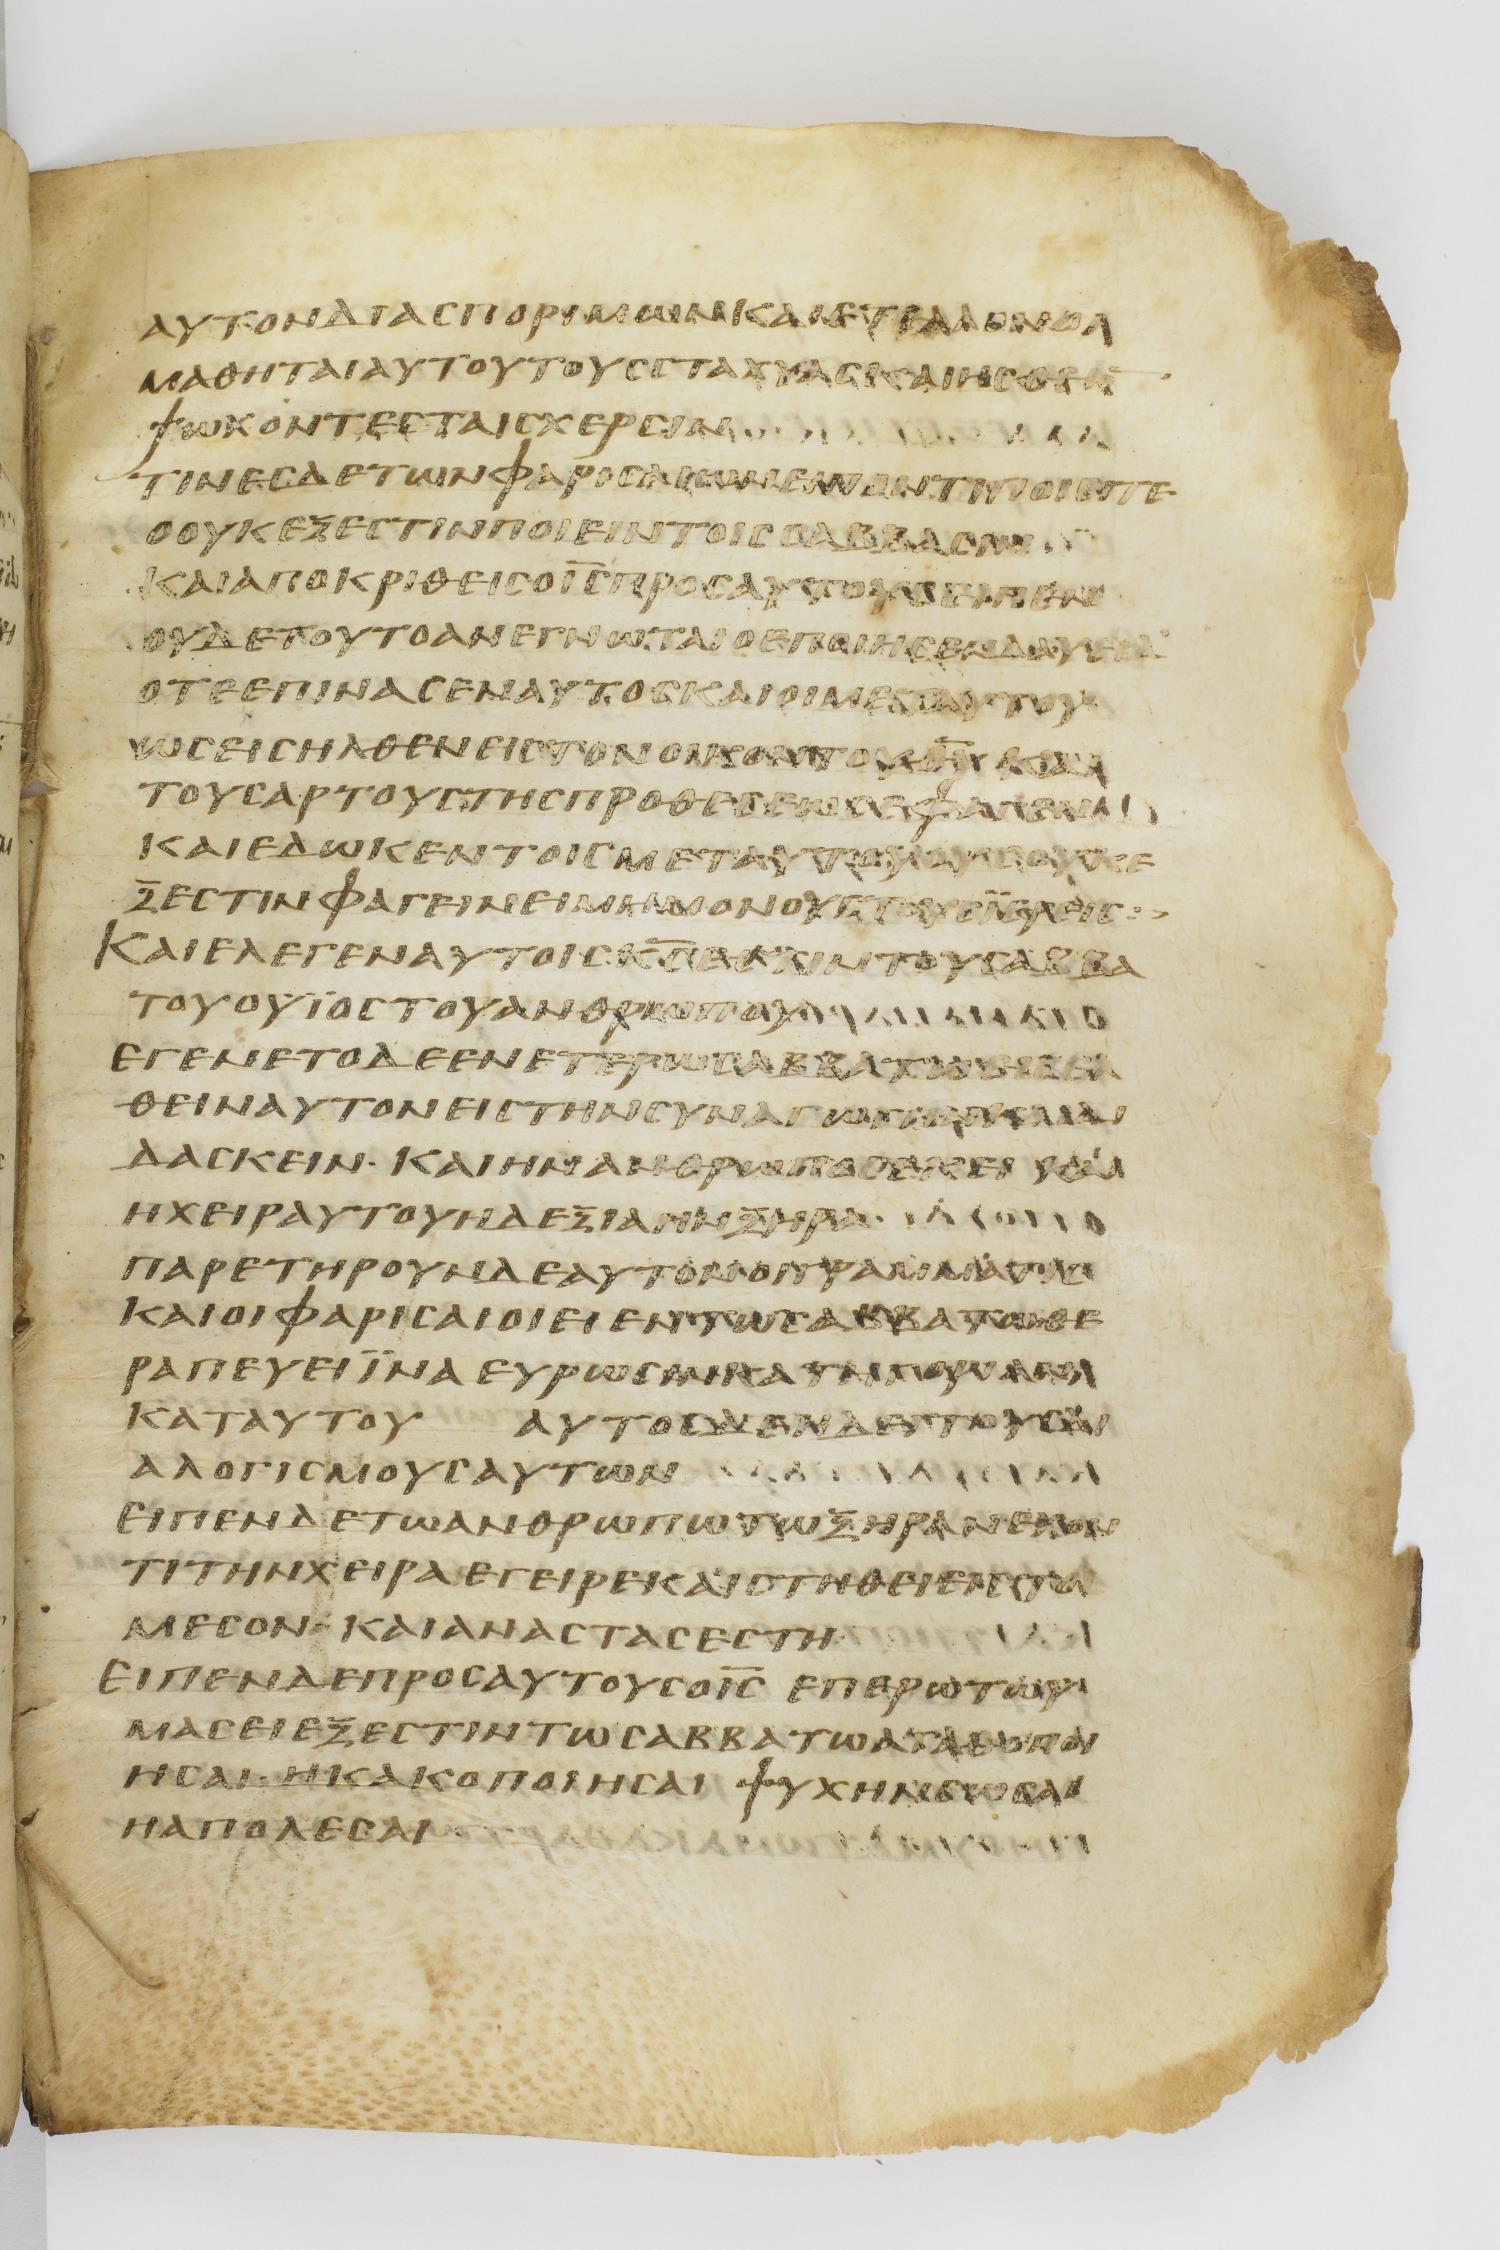 ΑΥΤΟΝΔΙΑΣΠΟΡΙΜΩΝΚΑΙΕΤΙΛΛΟΝΟΙ
ΜΑΘΗΤΑΙΑΥΤΟΥΤΟΥΣΣΤΑΧΥΑΣΚΑΙΗΣΘΙΟΝ
ΨΩΧΟΝΤΕΣΤΑΙΣΧΕΡΣΙΝ
ΤΙΝΕΣΔΕΤΩΝΦΑΡΙΣΑΙΩΝΕΙΠΟΝΤΙΠΟΙΕΙΤΕ
ΟΟΥΚΕΞΕΣΤΙΝΠΟΙΕΙΝΤΟΙΣΣΑΒΒΑΣΙΝ
ΚΑΙΑΠΟΚΡΙΘΕΙΣΟΙΣΠΡΟΣΑΥΤΟΥΣΕΙΠΕΝ
ΟΥΔΕΤΟΥΤΟΑΝΕΓΝΩΤΑΙΟΕΠΟΙΗΣΕΝΔΑΥΕΙΔ
ΟΤΕΕΠΙΝΑΣΕΝΑΥΤΟΣΚΑΙΟΙΜΕΤΑΥΤΟΥ
ΩΣΕΙΣΗΛΘΕΝΕΙΣΤΟΝΟΙΚΟΝΤΟΥΘΥΚΑΙ
ΤΟΥΣΑΡΤΟΥΣΤΗΣΠΡΟΘΕΣΕΩΣΕΦΑΓΕΝ
ΚΑΙΕΔΩΚΕΝΤΟΙΣΜΕΤΑΥΤΟΥΟΥΣΟΥΚΕ
ΞΕΣΤΙΝΦΑΓΕΙΝΕΙΜΗΜΟΝΟΥΣΤΟΥΣΪΕΡΕΙΣ
ΚΑΙΕΛΕΓΕΝΑΥΤΟΙΣΚΣΕΣΤΙΝΤΟΥΣΑΒΒΑ
ΤΟΥΟΥΪΟΣΤΟΥΑΝΘΡΩΠΟΥ
ΕΓΕΝΕΤΟΔΕΕΝΕΤΕΡΩΣΑΒΒΑΤΩΕΙΣΕΛ
ΘΕΙΝΑΥΤΟΝΕΙΣΤΗΝΣΥΝΑΓΩΓΗΝΚΑΙΔΙ
ΔΑΣΚΕΙΝ·ΚΑΙΗΝΑΝΘΡΩΠΟΣΕΚΕΙΚΑΙ
ΗΧΕΙΡΑΥΤΟΥΗΔΕΞΙΑΗΝΞΗΡΑ
ΠΑΡΕΤΗΡΟΥΝΔΕΑΥΤΟΝΟΙΓΡΑΜΜΑΤΕΙΣ
ΚΑΙΟΙΦΑΡΙΣΑΙΟΙΕΙΕΝΤΩΣΑΒΒΑΤΩΘΕ
ΡΑΠΕΥΕΙΪΝΑΕΥΡΩΣΙΝΚΑΤΗΓΟΡΙΑΝ
ΚΑΤΑΥΤΟΥ ΑΥΤΟΣΔΕΗΔΕΙΤΟΥΣΔΙ
ΑΛΟΓΙΣΜΟΥΣΑΥΤΩΝ
ΕΙΠΕΝΔΕΤΩΑΝΘΡΩΠΩΤΩΞΗΡΑΝΕΧΟΝ
ΤΙΤΗΝΧΕΙΡΑΕΓΕΙΡΕΚΑΙΣΤΗΘΙΕΙΣΤΟ
ΜΕΣΟΝ·ΚΑΙΑΝΑΣΤΑΣΕΣΤΗ
ΕΙΠΕΝΔΕΠΡΟΣΑΥΤΟΥΣΟΙΣ ΕΠΕΡΩΤΩΥ
ΜΑΣΕΙΕΞΕΣΤΙΝΤΩΣΑΒΒΑΤΩΑΓΑΘΟΠΟΙ
ΗΣΑΙ·ΗΚΑΚΟΠΟΙΗΣΑΙ ΨΥΧΗΝΣΩΣΑΙ
ΗΑΠΟΛΕΣΑΙ